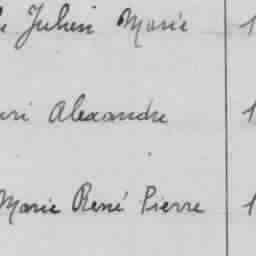 Julien Marie 1
Alexandre 1
Marie René Pierre 1